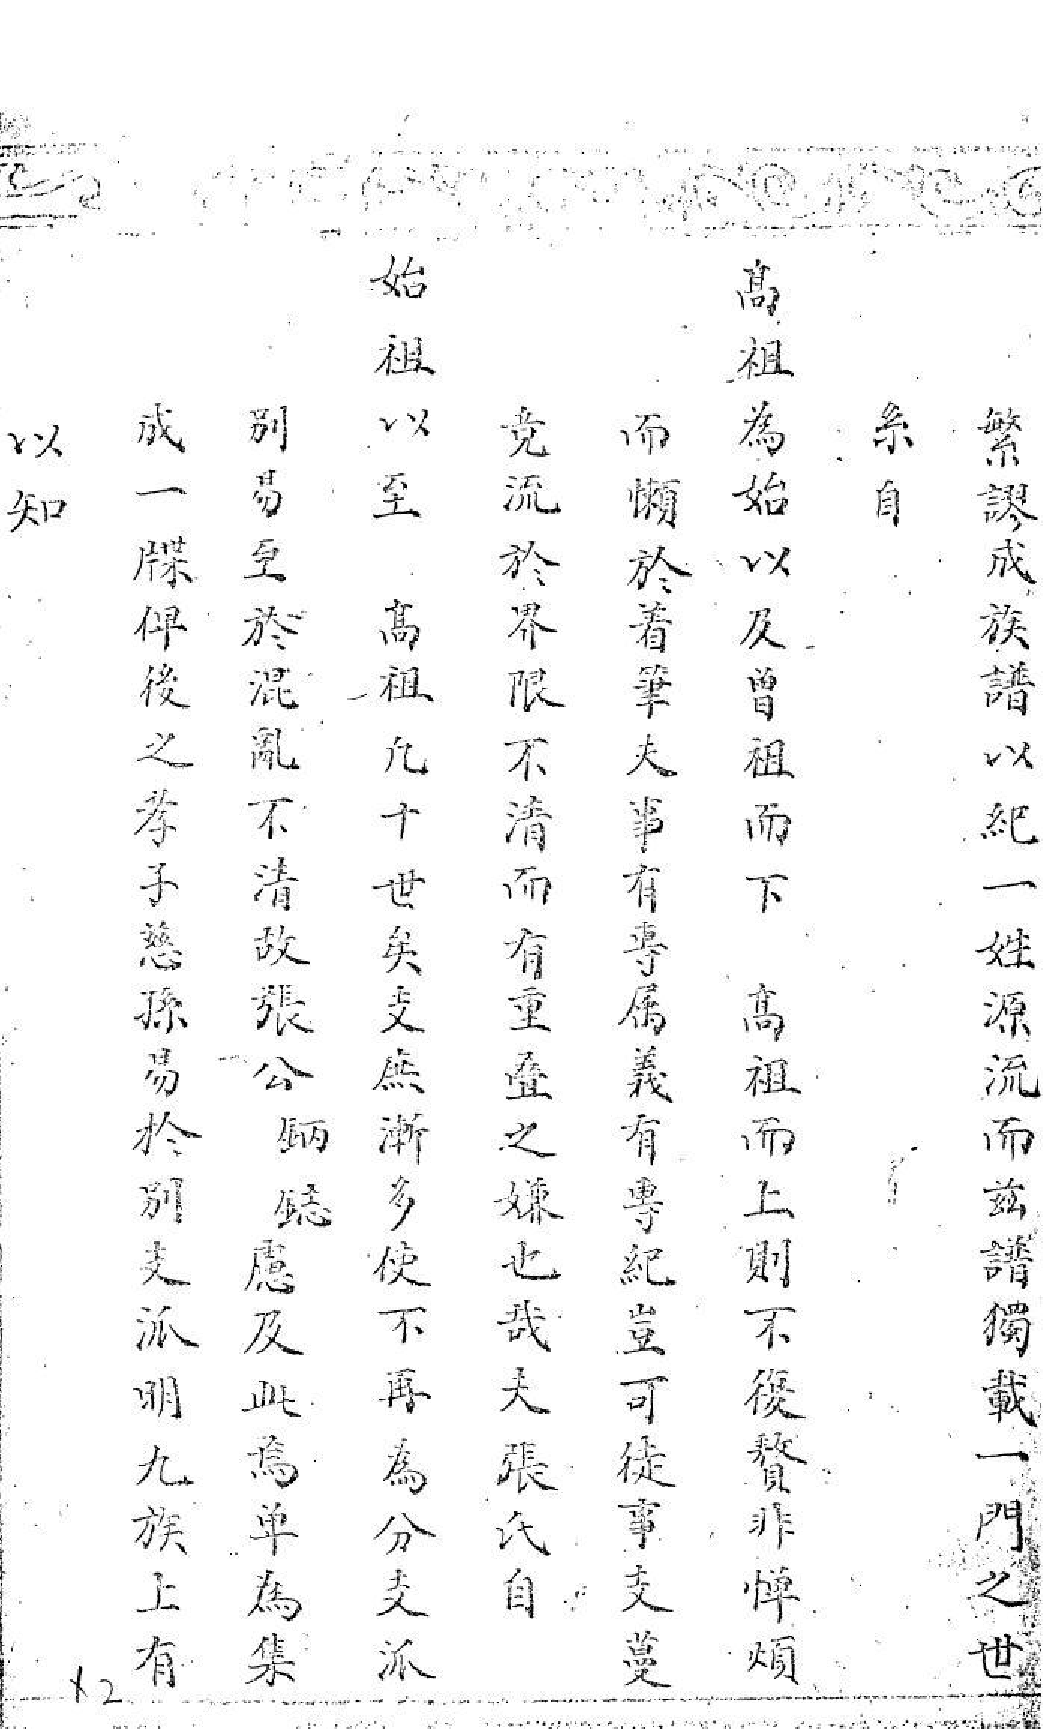 繁謬成族譜以紀一姓源流而兹譜獨載一門之世
系自
髙祖為始以及曾祖而下　髙祖而上則不復贅非憚煩
而懶於着筆夫事有專属義有專紀豈可徒事支蔓
竞流於界限不清而有重叠之嫌也哉夫張氏自
始祖以至　髙祖凢十世矣支庶漸多使不再為分支派
别易至於混亂不清故張公　慮及此焉单為集
成一牒俾後之孝子慈孫易於别支派明九族上有
以知
12